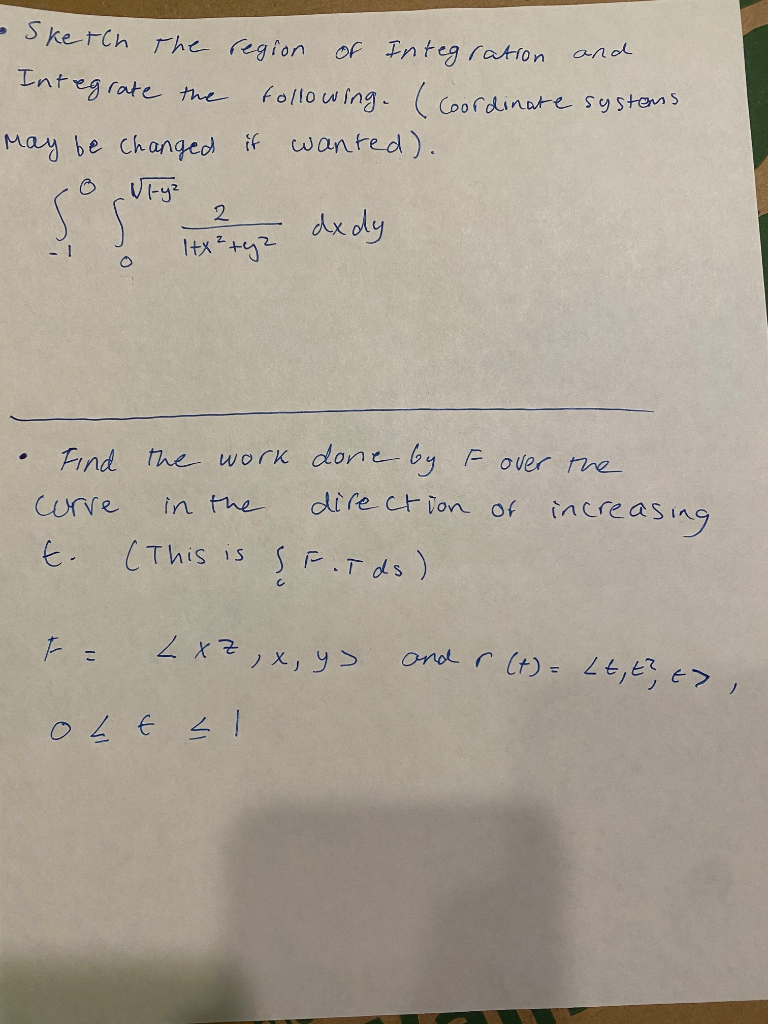 • Sketch The region of Integration and
Integrate the following. (Coordinate systems
May be changed if wanted).
∫_{-1}^{0} ∫_{0}^{√1-y²} 2/(1+x²+y²) dx dy
• Find the work done by F over the
curve in the direction of increasing
t. (This is ∫_c F·T ds)
F = <xz, x, y> and r(t) = <t, t², t>,
0 ≤ t ≤ 1